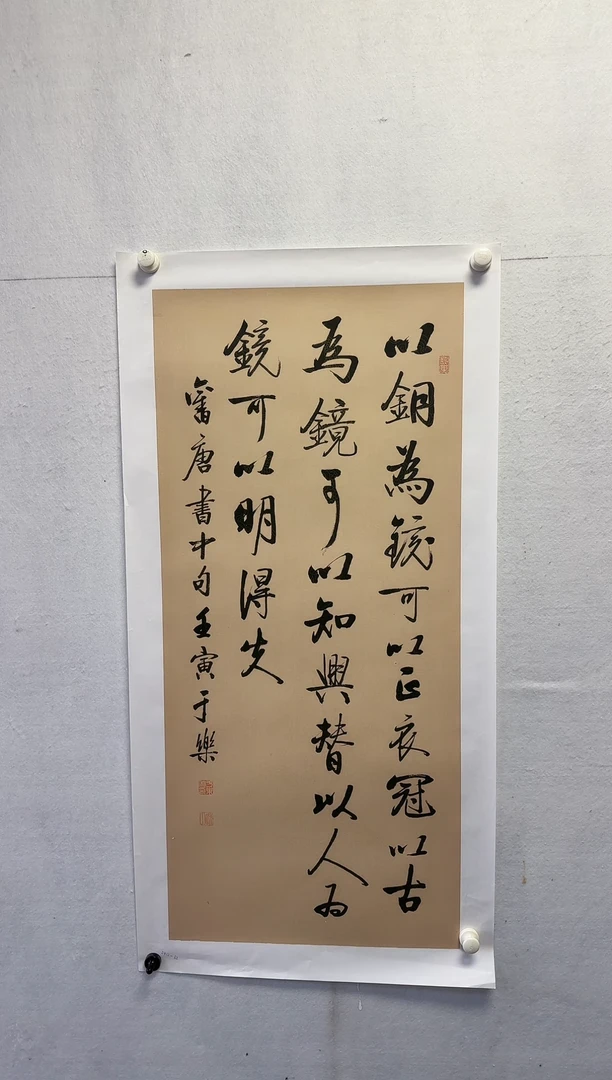 以銅為鏡可以正衣冠以古
為鏡可以知興替以人為
鏡可以明得失
舊唐書中句壬寅于樂